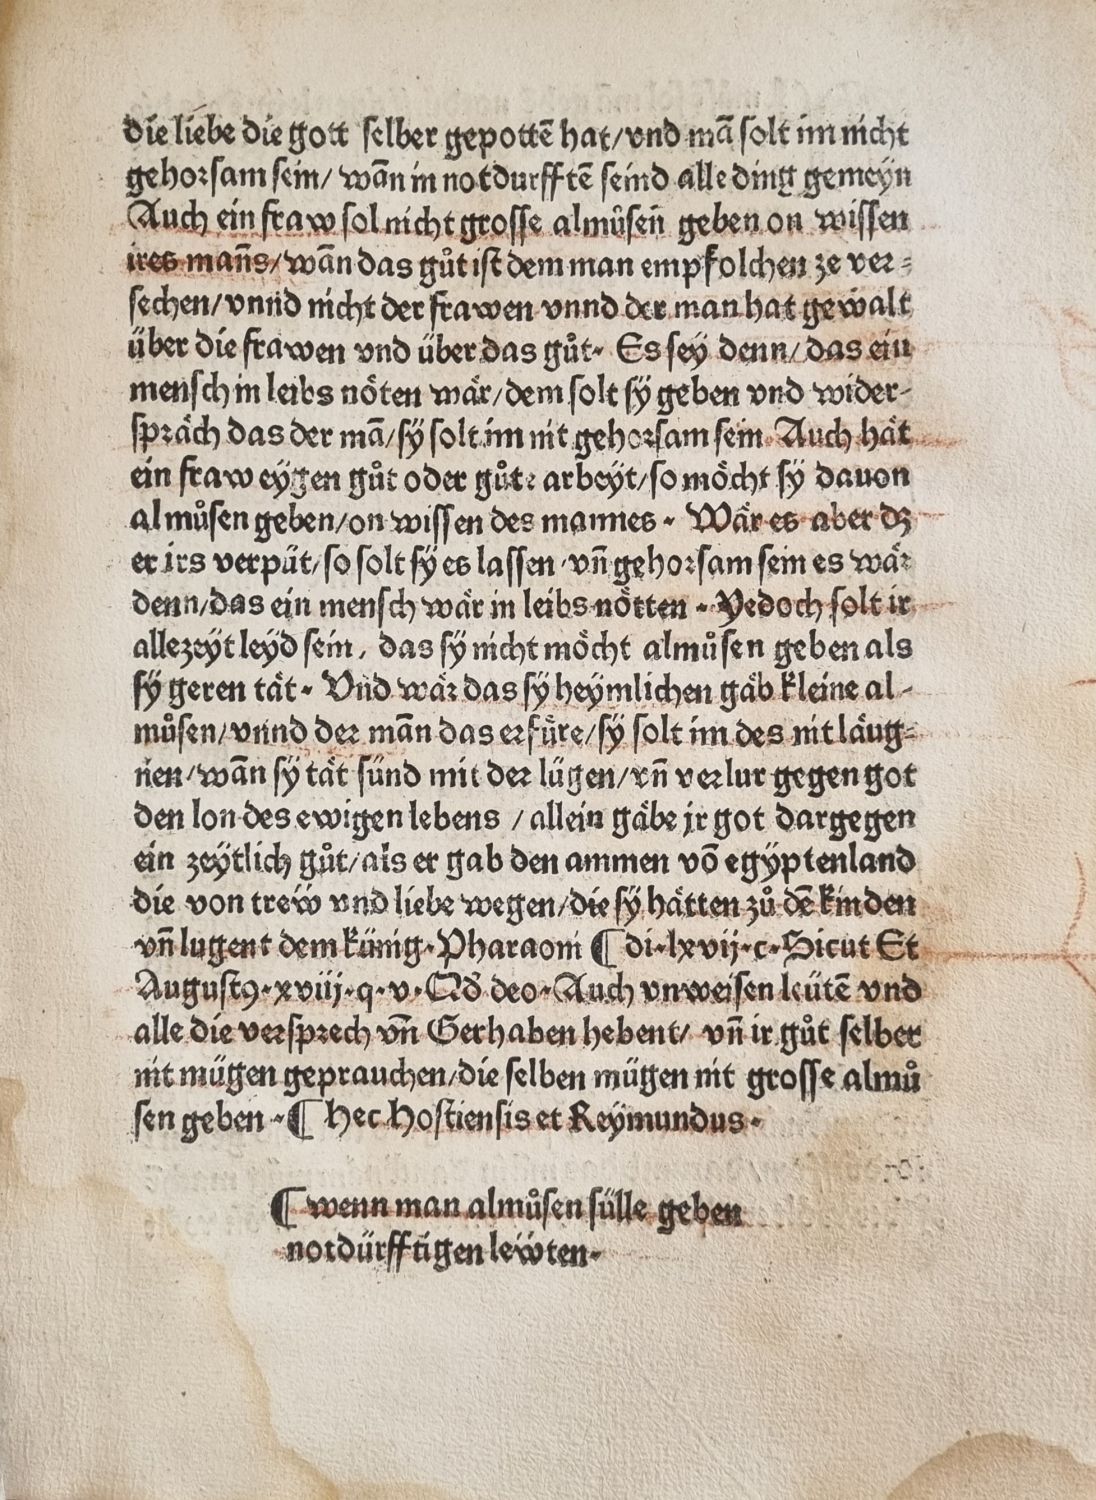 die liebe die gott selber gepottē hat/vnd mā solt im nicht
gehorsam sein/ wān in notdurfftē seind alle ding gemeyn
Auch ein fraw sol nicht grosse almůsen̄ geben on wissen
ires man̄s/wān das gůt ist dem man empfolchen ze ver⸗
sechen/vnnd nicht der frawen vnnd der man hat gewalt
über die frawen vnd über das gůt· Es sey denn/das ein
mensch in leibs nöten wär/dem solt sÿ geben vnd wider⸗
spräch das der mā/sÿ solt im nit gehorsam sein· Auch hät
ein fraw eÿgen gůt oder gůte arbeÿt/so möcht sÿ dauon
almůsen geben/on wissen des mannes· Wär es aber dz
er irs verpüt/so solt sÿ es lassen vn̄ gehorsam sein es wär
denn/das ein mensch wär in leibs nötten· Yedoch solt ir
allezeÿt leÿd sein/ das sÿ nicht möcht almůsen geben als
sÿ geren tät· Vnd wär das sÿ heÿmlichen gäb kleine al⸗
můsen/vnnd der mān das erfüre/sÿ solt im des nit läug⸗
nen/wān sÿ tät sünd mit der lügen/vn̄ verlur gegen got
den lon des ewigen lebens /allein gäbe jr got dargegen
ein zeÿtlich gůt/als er gab den ammen vō egÿptenland
die von trew vnd liebe wegen/die sÿ hätten zů dē kinden
vn̄ lugent dem künig·Pharaoni ¶ di·lxvij·c·Sicut Et
Augustꝰ·xviij·q·v·Qđ deo·Auch vnweisen leütē vnd
alle die versprech vn̄ Gerhaben hebent/ vn̄ ir gůt selber
nit mügen geprauchen/die selben mügen nit grosse almů
sen geben·¶ Hec Hostiensis et Reÿmundus·
¶ wenn man almůsen sülle geben
notdürfftigen lewten·